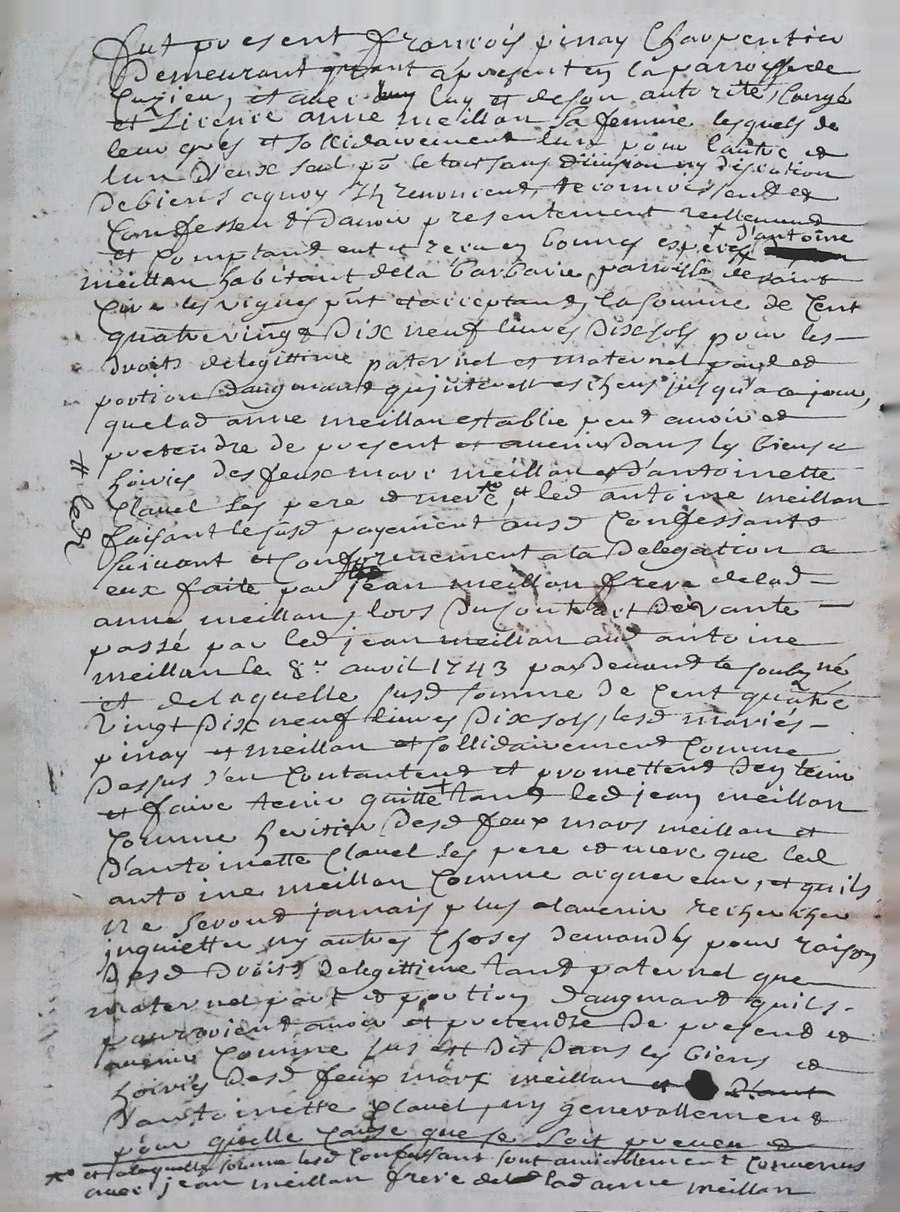 fut present françois pinay Charpentier
Demeurant apresent en la parroisse de
Luzieu, et avec luy et de son autorité Cong
et Licence anne meillan sa femme lesquels de
leur gres et sollidairement lun pour lautre et
lun d'eux seul po le tout sans division ny discution
De biens aquoy Ils renoncent, reconnoissent et
Confessent davoir presentement reellement
et Comptant eut et receu en bonnes especes d'antoine
meillan habitant dela barbarie, parroisse de saint
Cire les vignes pnt et acceptant, la somme de Cent
quatre vingt Dix neuf livres Dix sols pour les
Droits de legittime paternel et maternel part et
portion daugmant jusqu'a ce jour,
que lad anne meillan establie peut avoir et
pretendre de present et avenir dans les biens et
hoiries des feux marc meillan et d'antoinette
Clauel ses pere et mere et led antoine meillan
faisant le susd payement ausd Confessants
suivant et Conformement a la Delegation a
eux faite par jean meillan frere de lad
anne meillan, lors du Contract De vante
passé par led jean meillan aud antoine
meillan le 8e avril 1743 par Devant le soubzné
et de laquelle susd somme de Cent quatre
Vingt Dix neuf livres Dix sols, lesd mariés
pinay et meillan et sollidairement Comme
Dessus s'en Contantent et promettent d'en tenir
et faire tenir quitte tant led jean meillan
Comme heritier Desd feux marc meillan et
d'antoinette Clauel ses pere et mere que led
antoine meillan Comme acquereur, et quils
ne seront jamais plus alavenir rechercher
inquietter ny autres Choses Demandés pour raison
Desd Droits De legittime tant paternel que
maternel part et portion daugmant quils
pourroient avoir et pretendre De present et
avenir Comme sus est Dit Dans les biens et
hoiries Desd feux marc meillan et D'ant
D'antoinette Clauel, ny generallement
pour quelle Cause que se soit preveu et
et alaquelle somme lesd Confessant sont amiablement Convenus
avec jean meillan frere de lad anne meillan